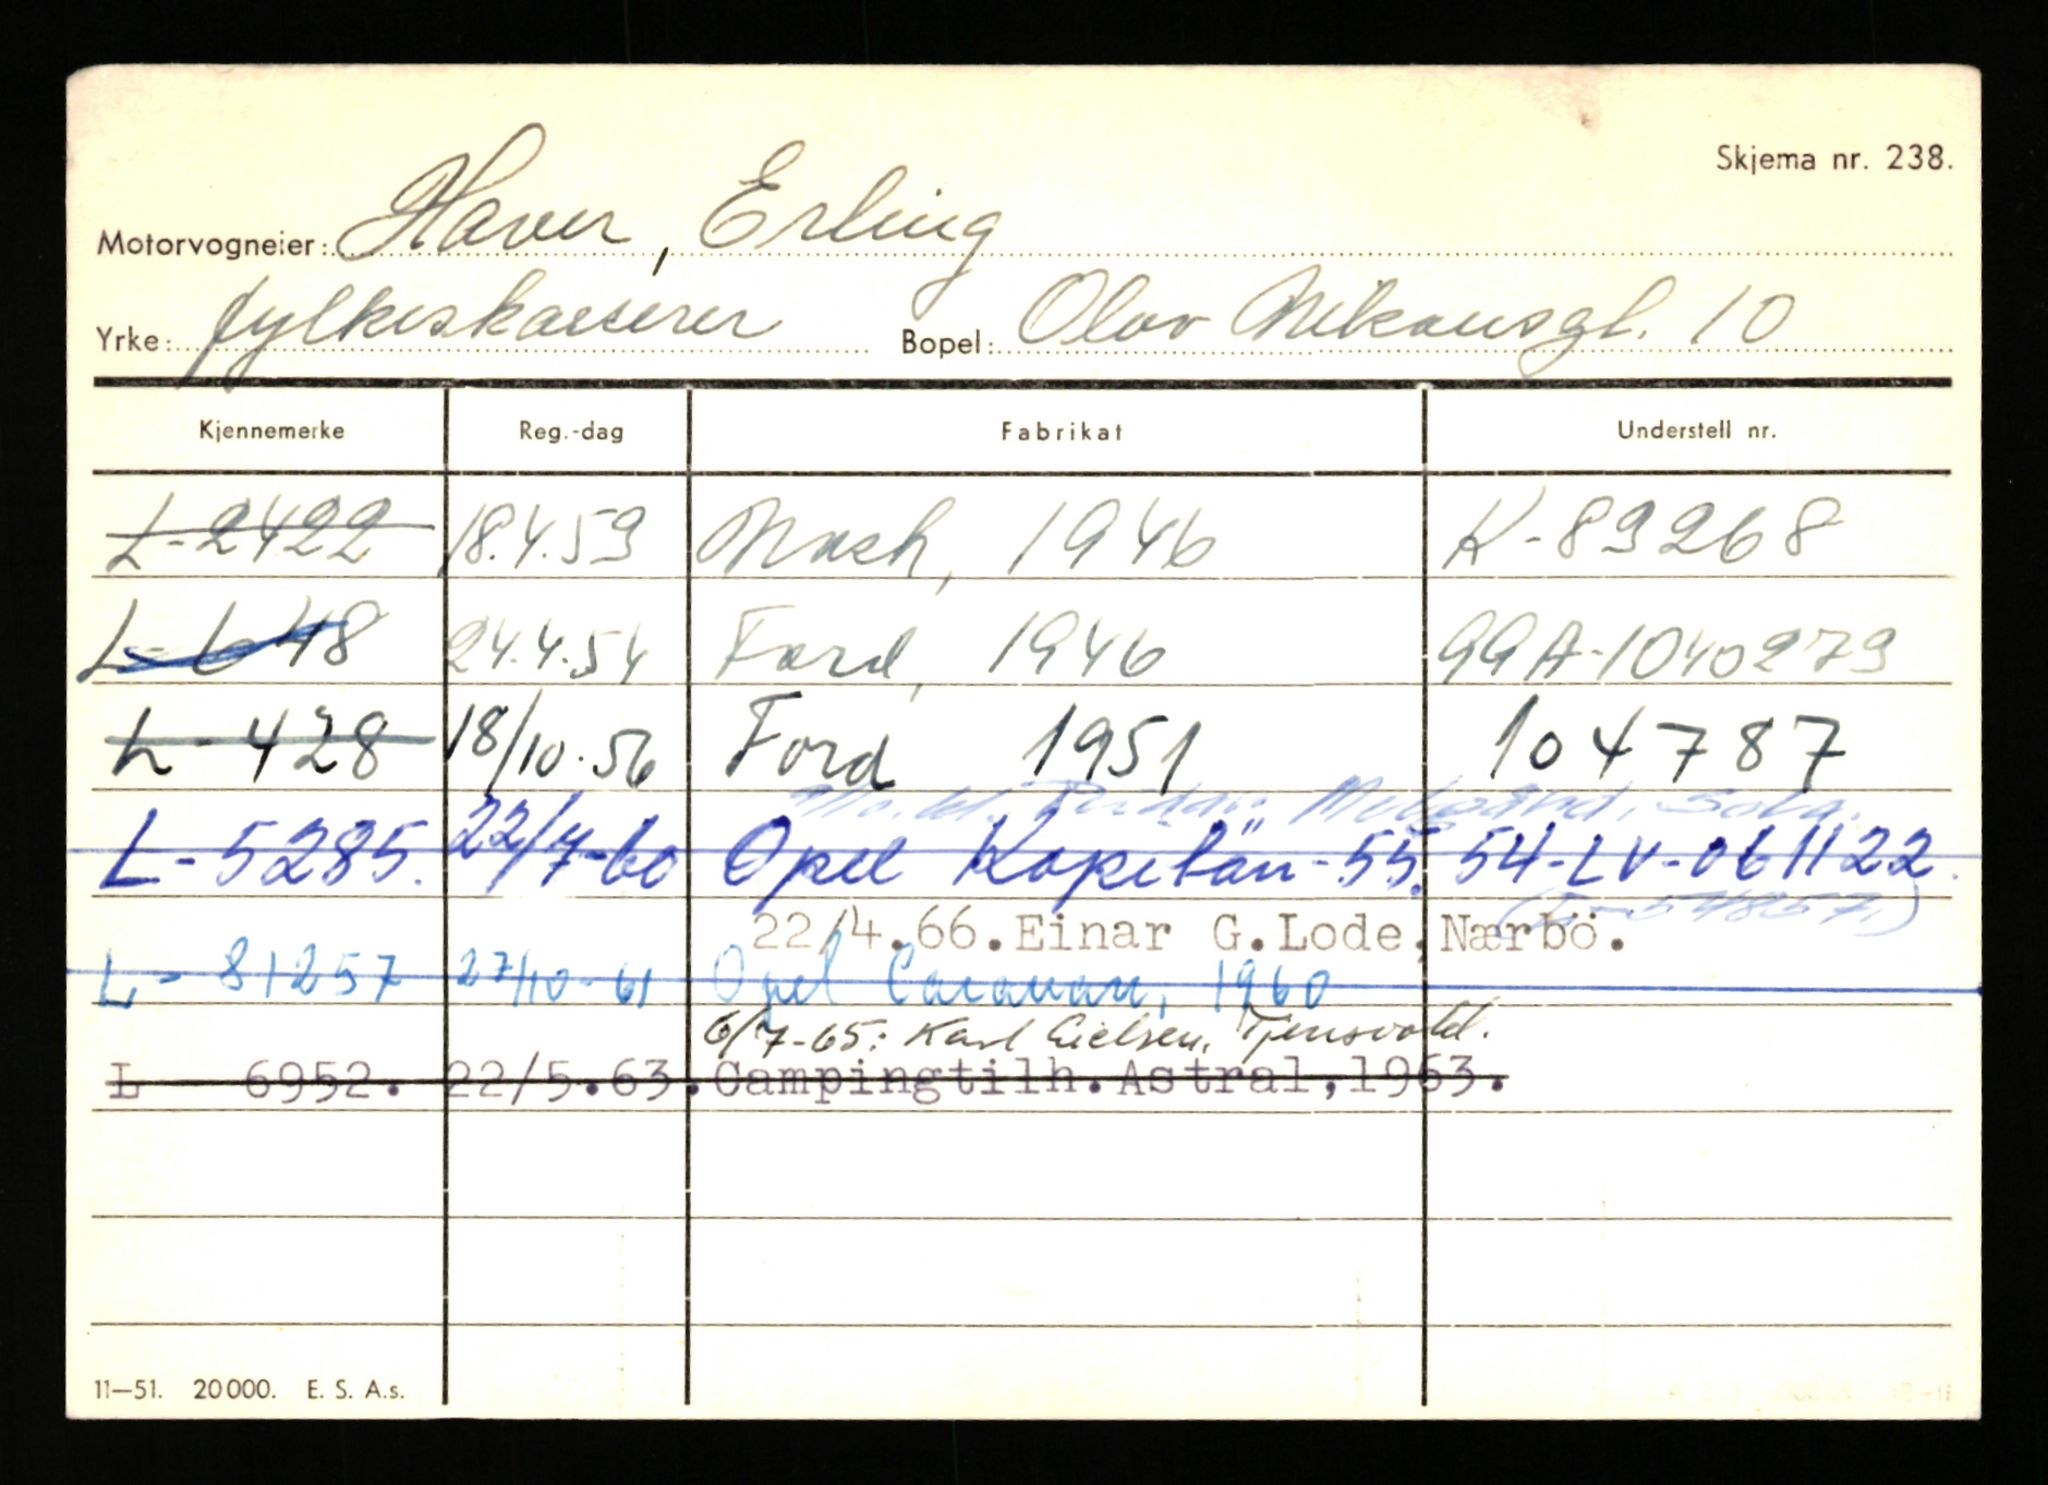 Skjema nr. 238.
Motorvogneier: Haver, Erling
Yrke: fylkeskasserer Bopel: Olav Nilsonsgt. 10
Kjennemerke Reg.-dag Fabrikat Understell nr.
L-2422 18.4.53 Nash, 1946 K-83268
L-648 24.4.54 Ford, 1946 99A-1040273
L-428 18/10.56 Ford 1951 104787
L-5285. 22/7-60 Opel Kapitän-55. 54-LV-061122.
22/4.66. Einar G. Lode, Nærbö.
L-81257 27/10-61 Opel Caravan, 1960
6/7-65: Karl Eielsen, Tjensvold.
L 6952. 22/5.63. Campingtilh. Astral, 1963.
11—51. 20000. E. S. A.s.